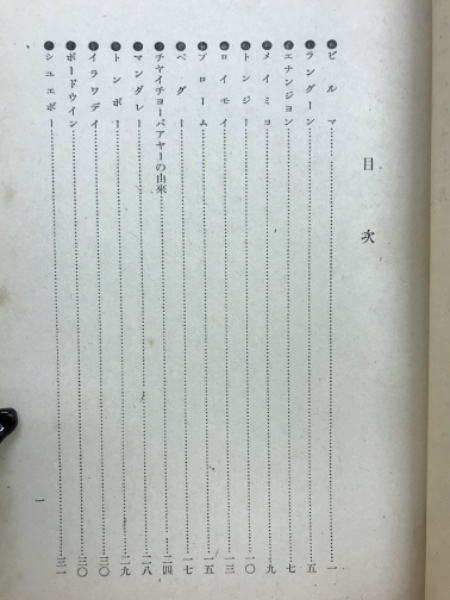 目次
ビルマ……一
ラングーン……五
エナンジョン……七
メイミョ……九
トンジー……一〇
ロイモイ……一三
プローム……一五
ペグー……一七
チャイチョーパアヤーの由来……二四
マンダレー……二八
トンボー……二九
イラワデイ……三〇
ボードウイン……三〇
シユエボー……三一
一